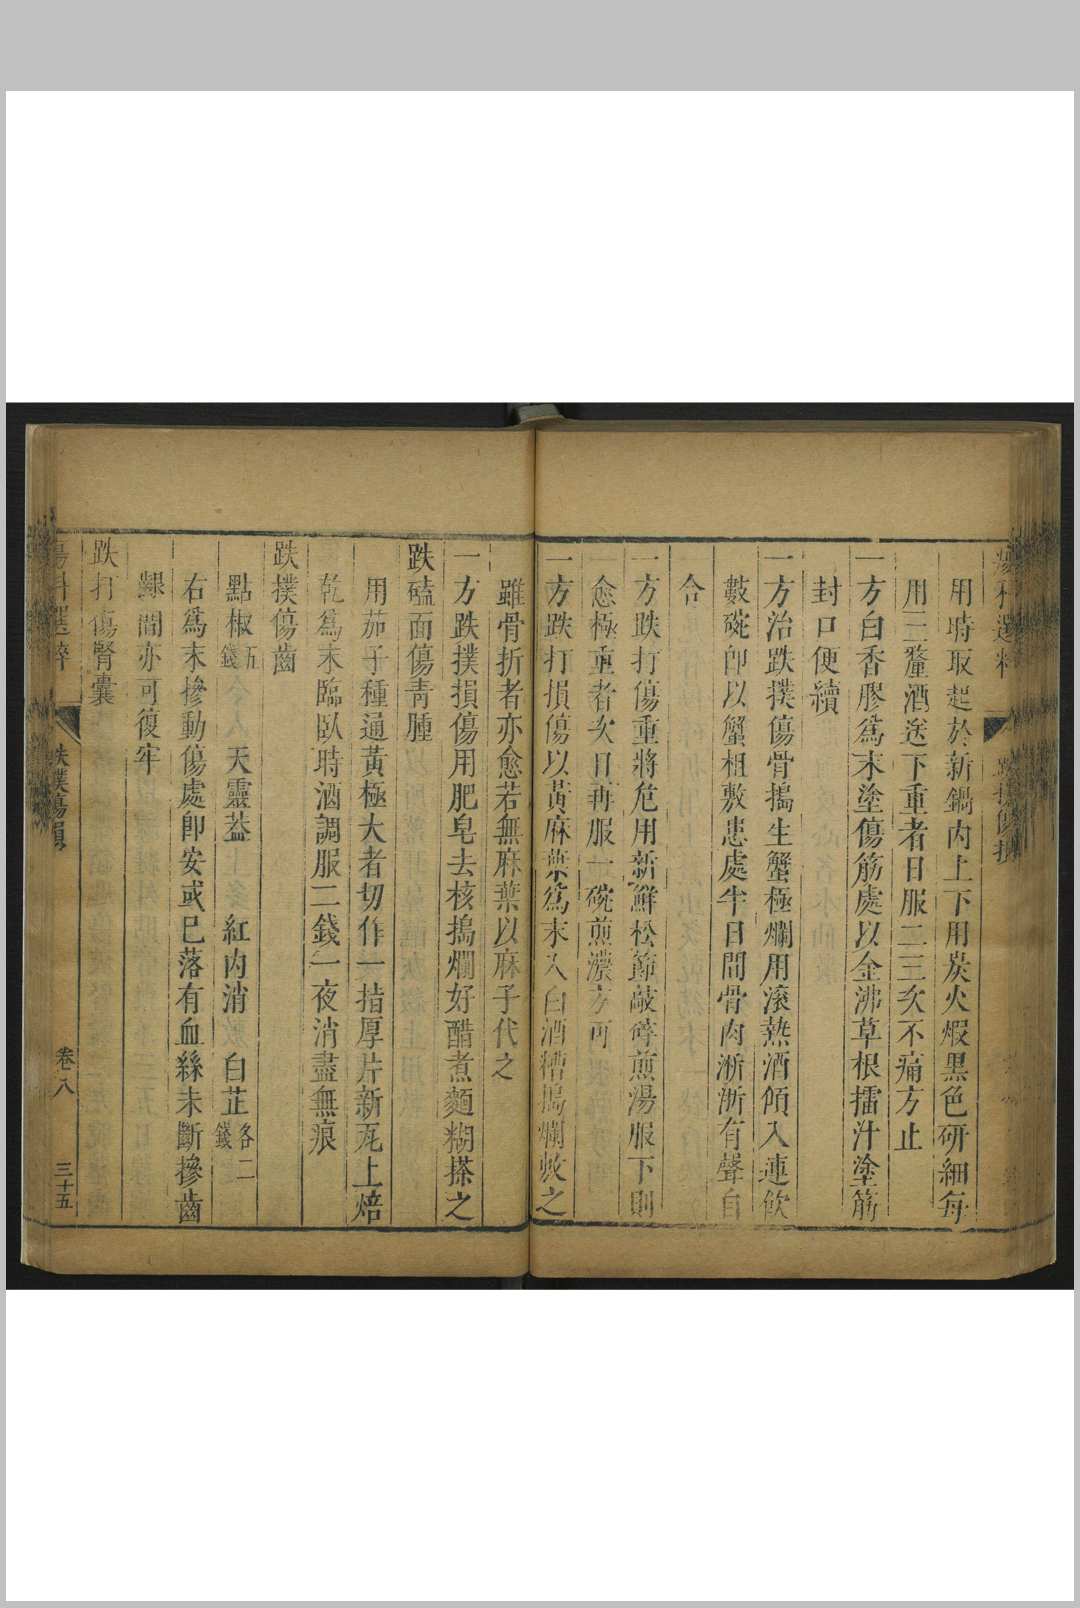 用時取起於新鍋內上下用炭火煆黑色研細每
用三釐酒送下重者日服二三次不痛方止
一方白香膠為末塗傷筋處以金沸草根擂汁塗筋
封口便續
一方治跌撲傷骨搗生蟹極爛用滾熱酒傾入連飲
數碗即以蟹柤敷患處半日間骨肉淅淅有聲自
合
一方跌打傷重將危用新鮮松節敲碎煎湯服下則
愈極重者次日再服一碗煎濃方可
一方跌打損傷以黃麻葉為末入白酒糟搗爛敷之
雖骨折者亦愈若無麻葉以麻子代之
一方跌撲損傷用肥皂去核搗爛好醋煮麵糊搽之
跌磕面傷青腫
用茄子種通黃極大者切作一指厚片新瓦上焙
乾為末臨臥時酒調服二錢一夜消盡無痕
跌撲傷齒
點椒五錢 天靈葢 紅內消 白芷各二錢
右為末摻動傷處即安或已落有血絲未斷摻齒
齦間亦可復牢
跌打傷腎囊
傷科選粹 跌撲傷損 卷八 三十五